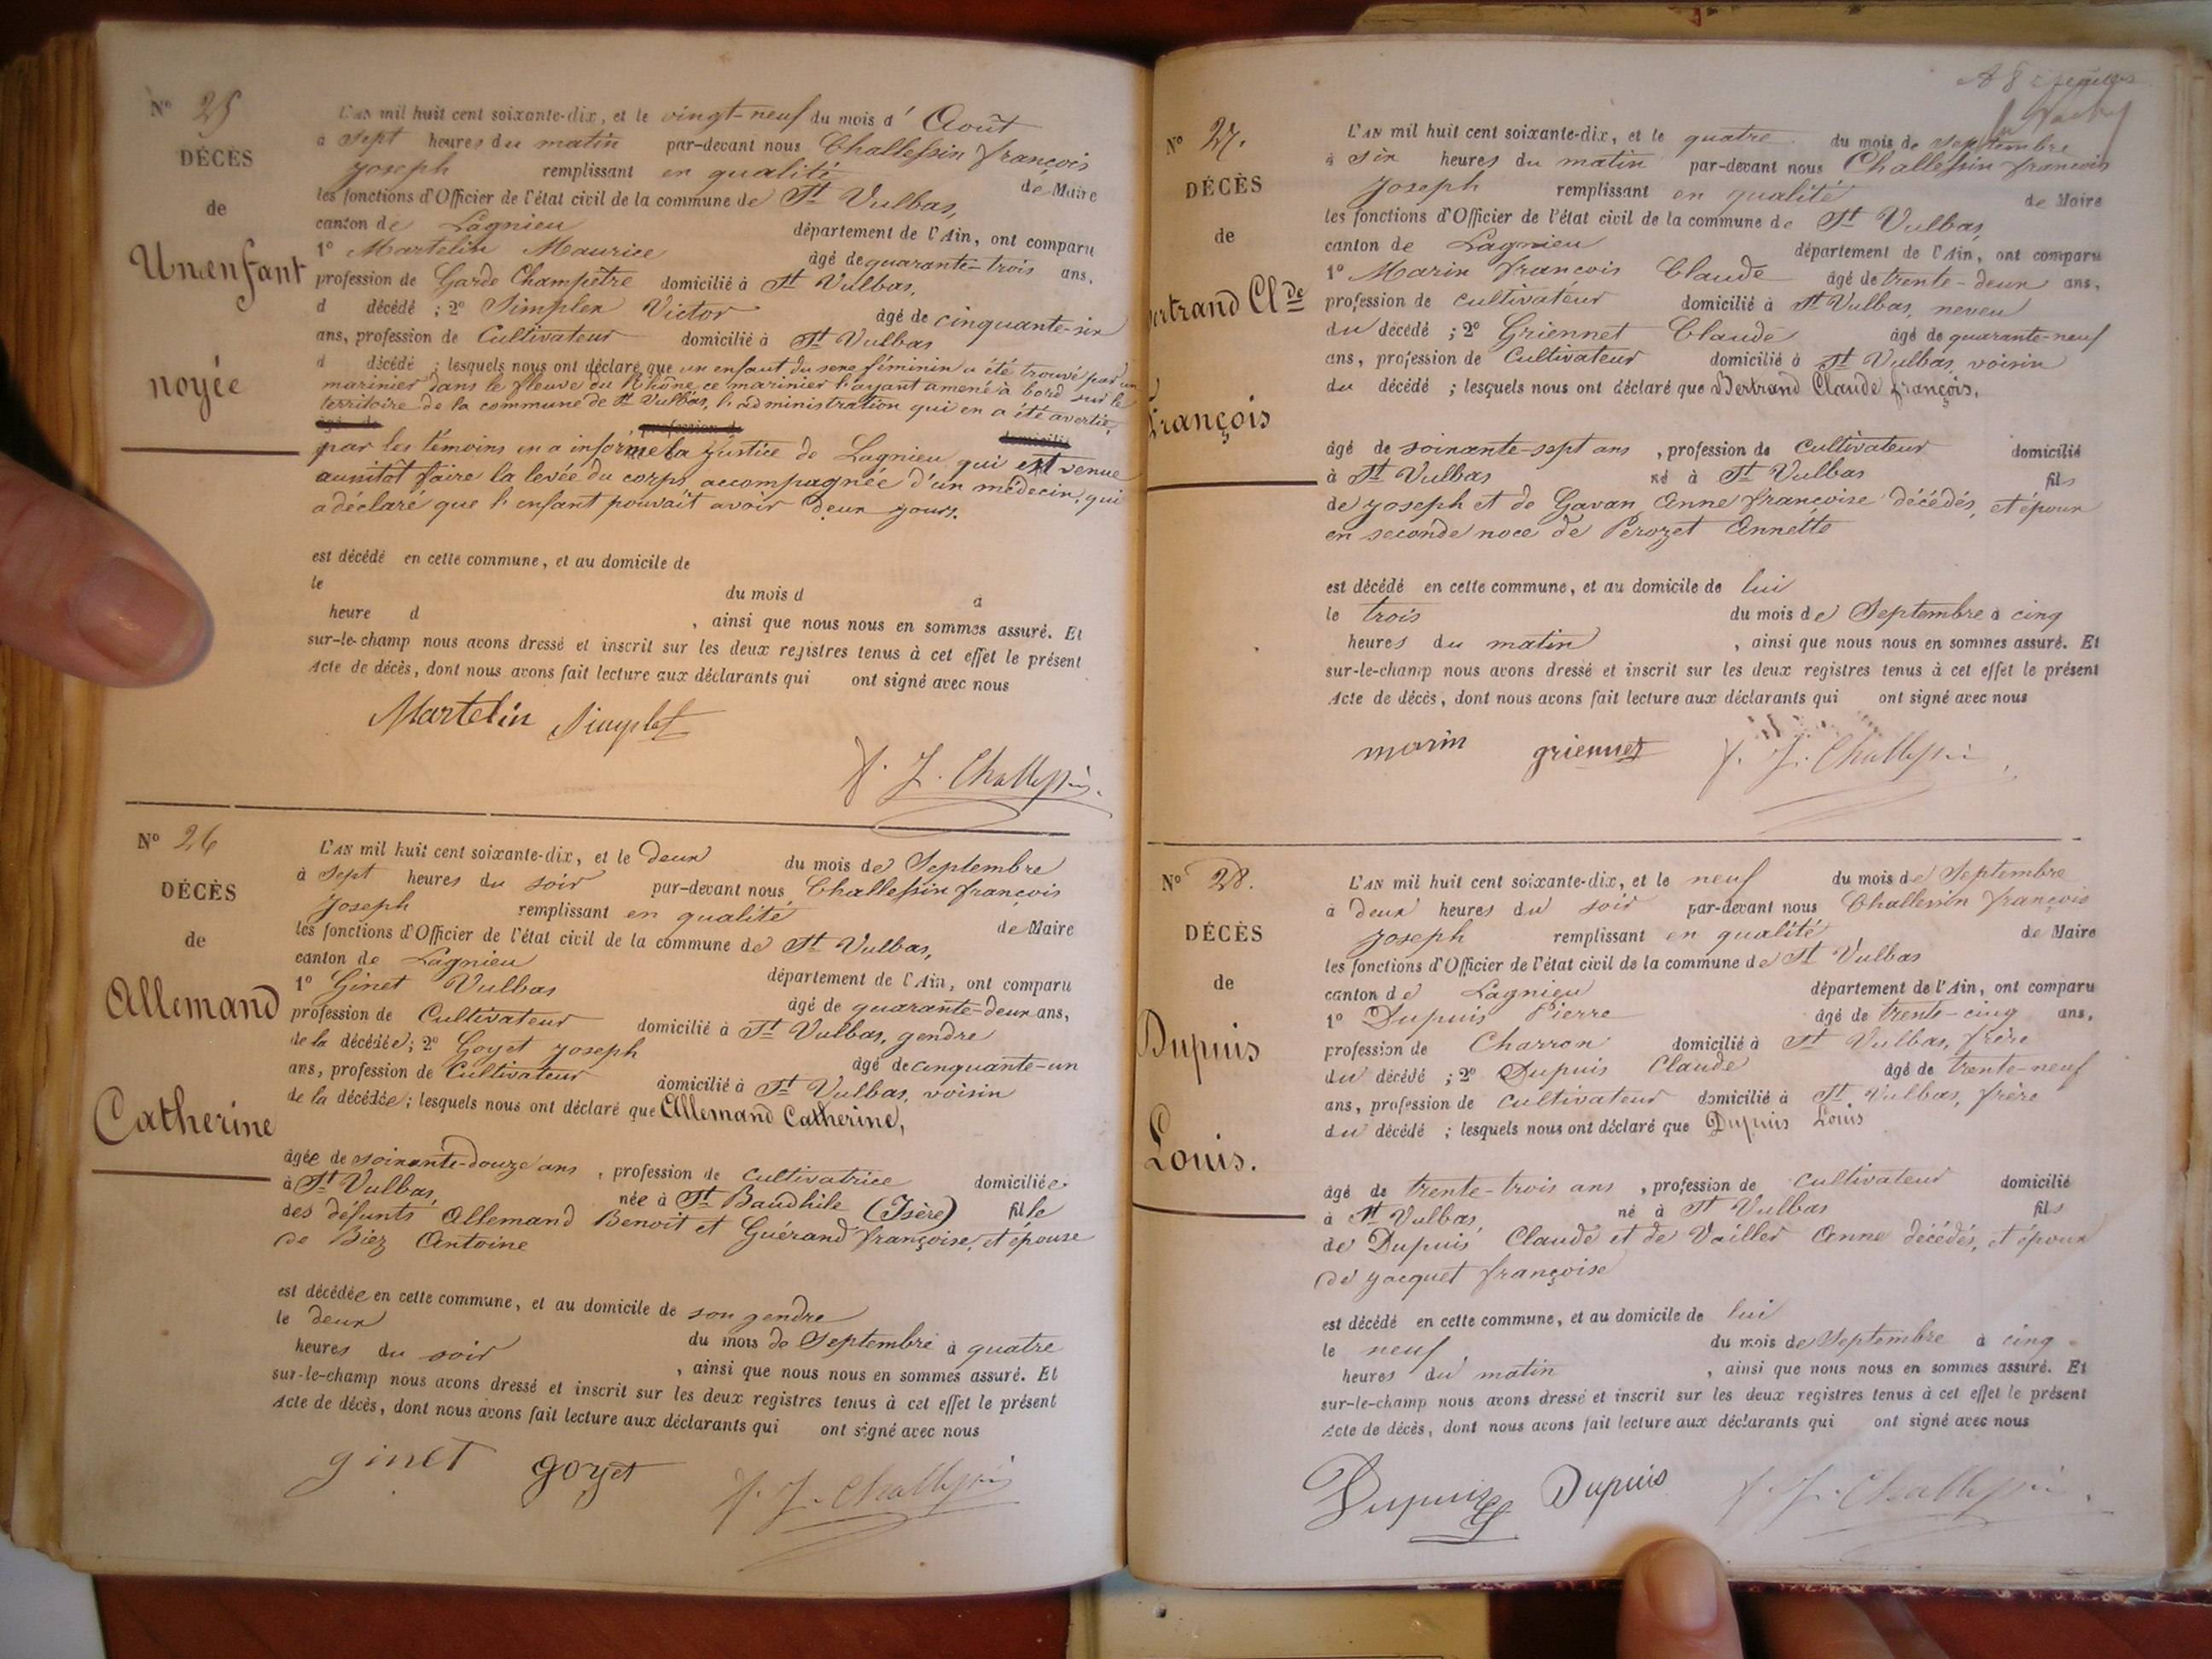 N° 25
DÉCÈS
de
Un enfant
noyée
L'AN mil huit cent soixante-dix, et le vingt-neuf du mois d'Août
à Sept heures du matin par-devant nous Challessin françois
Joseph remplissant en qualité de Maire
les fonctions d'Officier de l'état civil de la commune de St Vulbas,
canton de Lagnieu département de l'Ain, ont comparu
1° Martelin Maurice âgé de quarante-trois ans,
profession de Garde Champêtre domicilié à St Vulbas,
d décédé ; 2° Simplex Victor âgé de cinquante-six
ans, profession de Cultivateur domicilié à St Vulbas
d décédé ; lesquels nous ont déclaré que un enfant du sexe féminin a été trouvé par un
marinier dans le fleuve du Rhône, ce marinier l'ayant amené à bord sur le
territoire de la commune de St Vulbas, l'administration qui en a été avertie,
par les témoins en a informé la justice de Lagnieu qui est venue
aussitôt faire la levée du corps accompagnée d'un médecin, qui
a déclaré que l'enfant pouvait avoir deux jours.
est décédé en cette commune, et au domicile de
le du mois d à
heure d , ainsi que nous nous en sommes assuré. Et
sur-le-champ nous avons dressé et inscrit sur les deux registres tenus à cet effet le présent
Acte de décès, dont nous avons fait lecture aux déclarants qui ont signé avec nous
Martelin Simplex
f. J. Challessin
N° 26
DÉCÈS
de
Allemand
Catherine
L'AN mil huit cent soixante-dix, et le deux du mois de Septembre
à Sept heures du soir par-devant nous Challessin françois
Joseph remplissant en qualité de Maire
les fonctions d'Officier de l'état civil de la commune de St Vulbas,
canton de Lagnieu département de l'Ain, ont comparu
1° Ginet Vulbas âgé de quarante-deux ans,
profession de Cultivateur domicilié à St Vulbas, gendre
de la décédée ; 2° Goyet Joseph âgé de cinquante-un
ans, profession de Cultivateur domicilié à St Vulbas, voisin
de la décédée ; lesquels nous ont déclaré que Allemand Catherine,
âgée de soixante-douze ans , profession de cultivatrice domiciliée
à St Vulbas, née à St Baudhile (Isère) fille
des défunts Allemand Benoit et Guérand françoise, et épouse
de Biez Antoine
est décédée en cette commune, et au domicile de son gendre
le deux du mois de Septembre à quatre
heures du soir , ainsi que nous nous en sommes assuré. Et
sur-le-champ nous avons dressé et inscrit sur les deux registres tenus à cet effet le présent
Acte de décès, dont nous avons fait lecture aux déclarants qui ont signé avec nous
ginet goyet f. J. Challessin
N° 27.
DÉCÈS
de
Bertrand Clde
François
L'AN mil huit cent soixante-dix, et le quatre du mois de septembre
à six heures du matin par-devant nous Challessin francois
Joseph remplissant en qualité de Maire
les fonctions d'Officier de l'état civil de la commune de St Vulbas,
canton de Lagnieu département de l'Ain, ont comparu
1° Marin françois Claude âgé de trente-deux ans,
profession de cultivateur domicilié à St Vulbas, neveu
du décédé ; 2° Griennet Claude âgé de quarante-neuf
ans, profession de Cultivateur domicilié à St Vulbas, voisin
du décédé ; lesquels nous ont déclaré que Bertrand Claude françois,
âgé de soixante-sept ans , profession de Cultivateur domicilié
à St Vulbas né à St Vulbas fils
de Joseph et de Gavan Anne françoise décédés, et époux
en seconde noce de Perozet Annette
est décédé en cette commune, et au domicile de lui
le trois du mois de Septembre à cinq
heures du matin , ainsi que nous nous en sommes assuré. Et
sur-le-champ nous avons dressé et inscrit sur les deux registres tenus à cet effet le présent
Acte de décès, dont nous avons fait lecture aux déclarants qui ont signé avec nous
marin griennet f. J. Challessin
N° 28.
DÉCÈS
de
Dupuis
Louis.
L'AN mil huit cent soixante-dix, et le neuf du mois de Septembre
à deux heures du soir par-devant nous Challessin françois
Joseph remplissant en qualité de Maire
les fonctions d'Officier de l'état civil de la commune de St Vulbas
canton de Lagnieu département de l'Ain, ont comparu
1° Dupuis Pierre âgé de trente-cinq ans,
profession de Charron domicilié à St Vulbas, frère
du décédé ; 2° Dupuis Claude âgé de trente-neuf
ans, profession de cultivateur domicilié à St Vulbas, frère
du décédé ; lesquels nous ont déclaré que Dupuis Louis
âgé de trente-trois ans , profession de cultivateur domicilié
à St Vulbas, né à St Vulbas fils
de Dupuis Claude et de Vailler Anne décédés, et époux
de Jacquet françoise
est décédé en cette commune, et au domicile de lui
le neuf du mois de Septembre à cinq
heures du matin , ainsi que nous nous en sommes assuré. Et
sur-le-champ nous avons dressé et inscrit sur les deux registres tenus à cet effet le présent
Acte de décès, dont nous avons fait lecture aux déclarants qui ont signé avec nous
Dupuis Dupuis f. J. Challessin